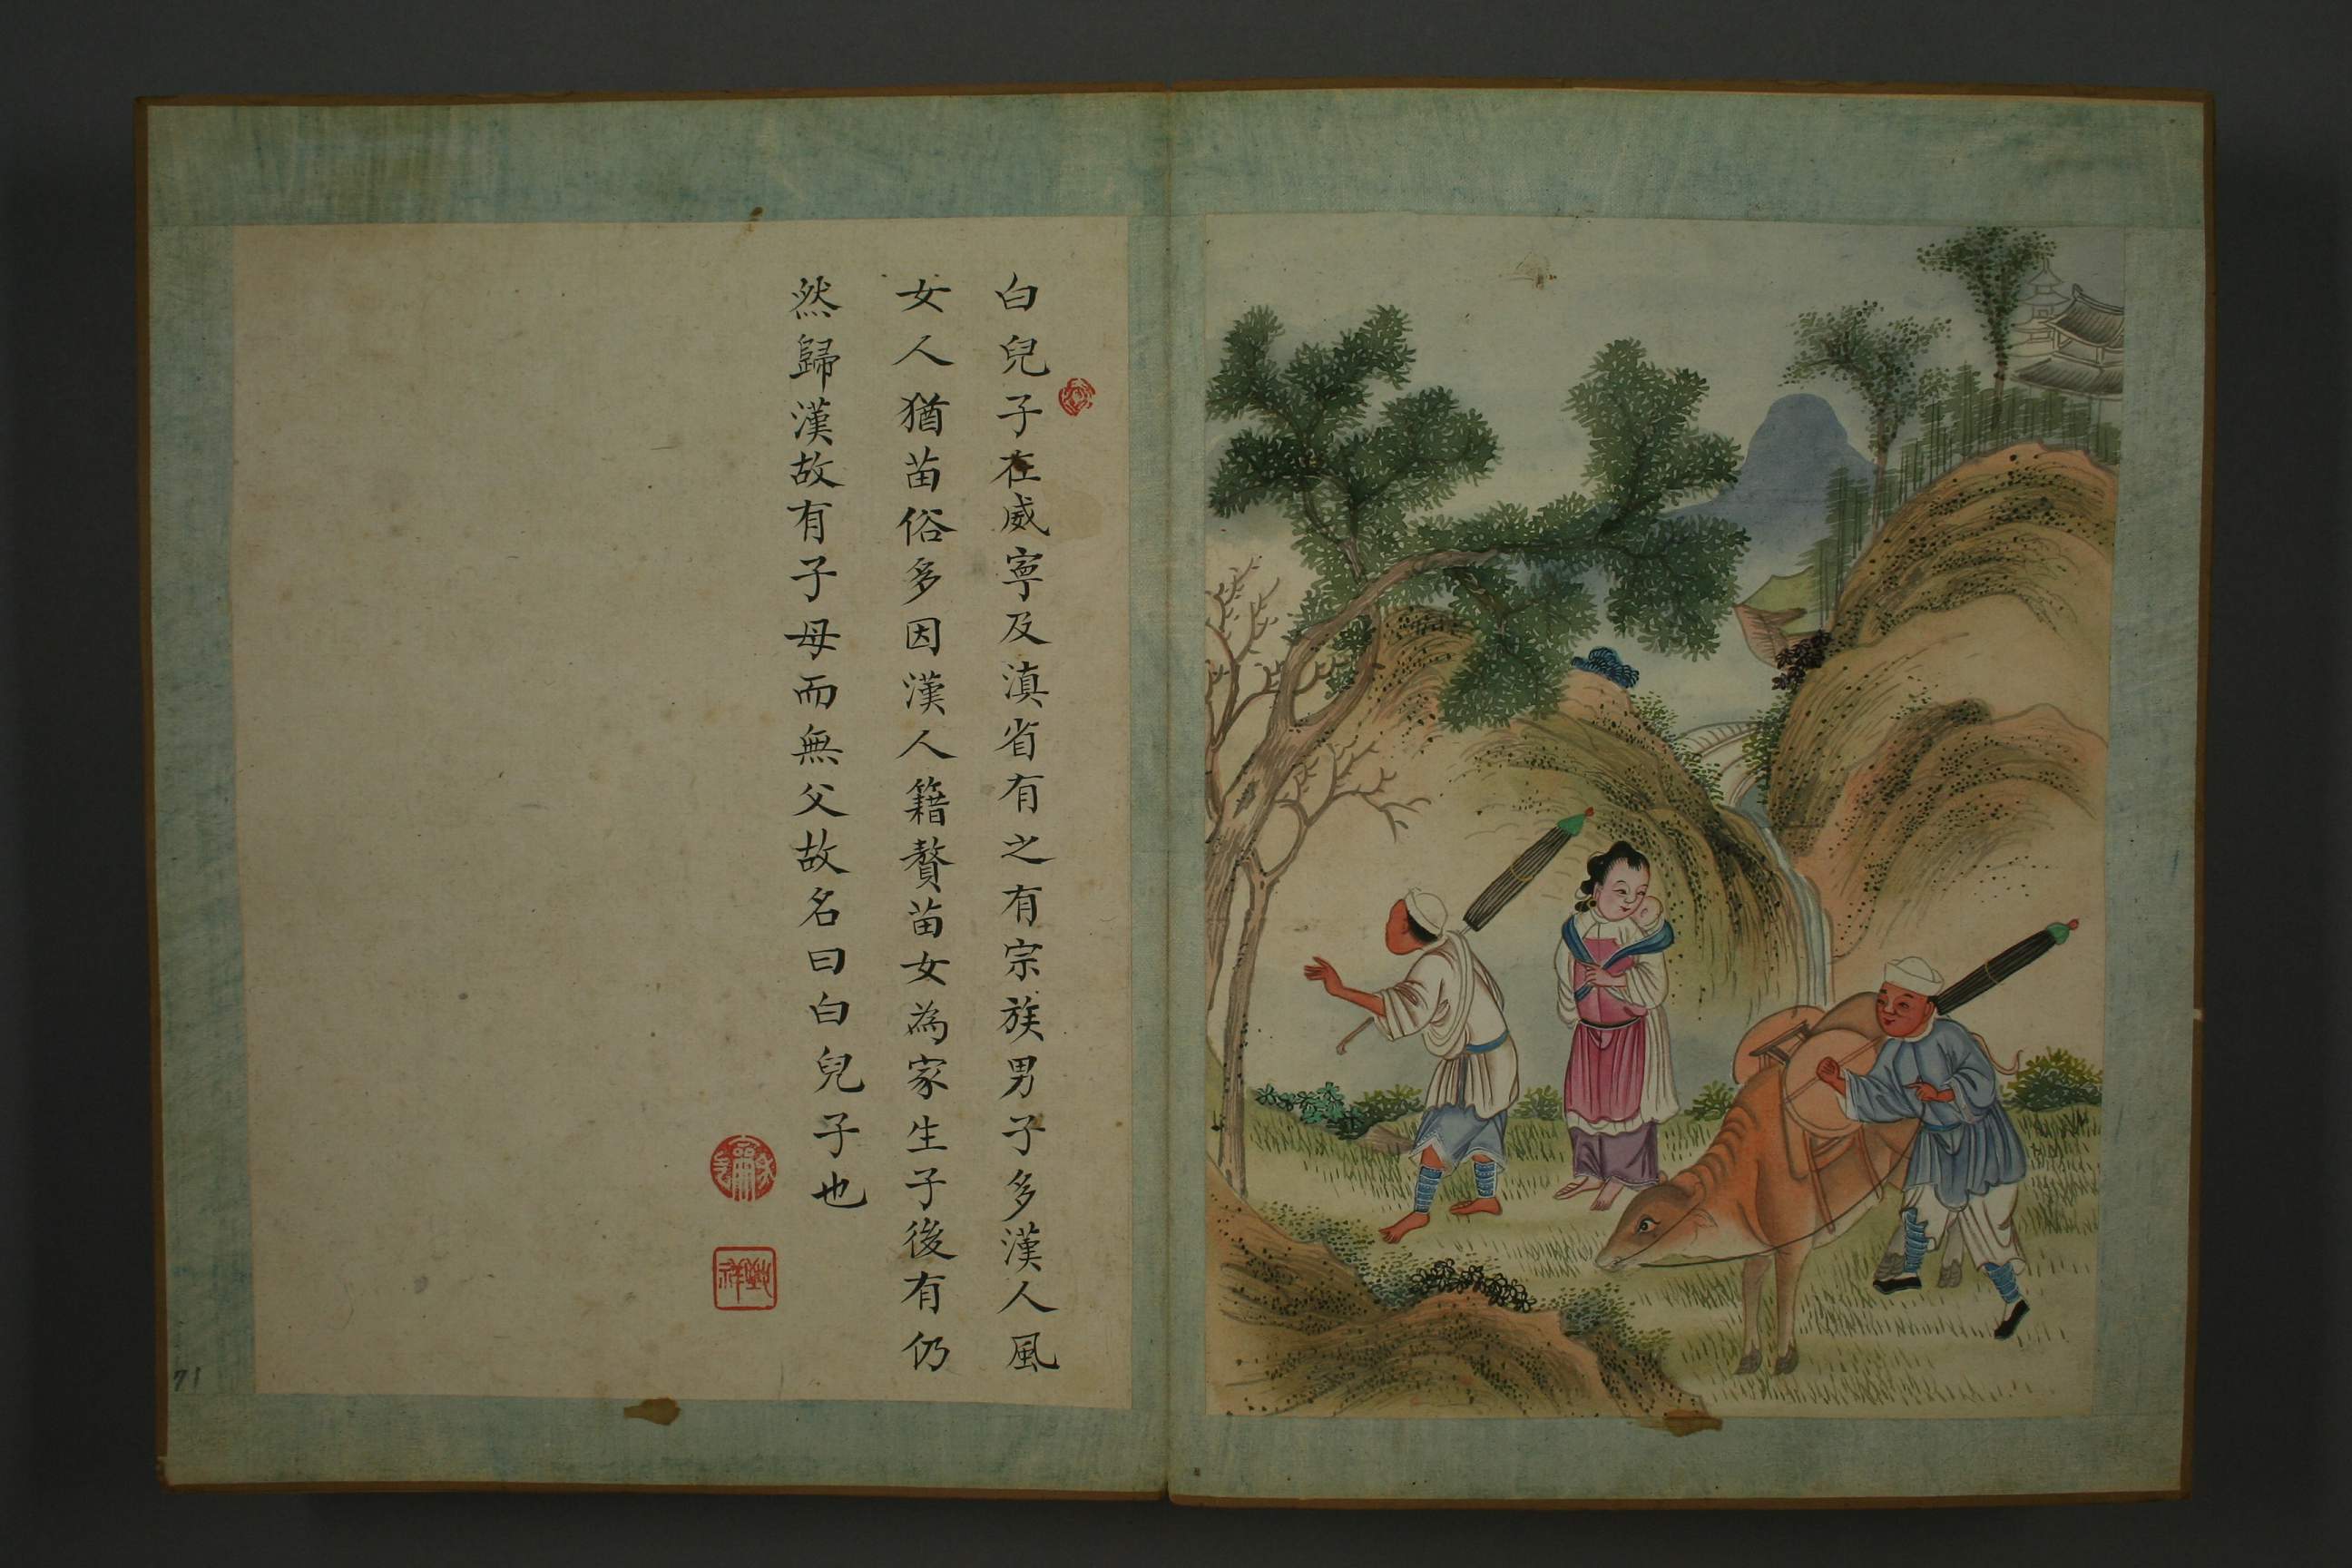 白兒子在威寧及滇省有之有宗族男子多漢人風
女人猶苗俗多因漢人籍贅苗女為家生子後有仍
然歸漢故有子母而無父故名曰白兒子也
71